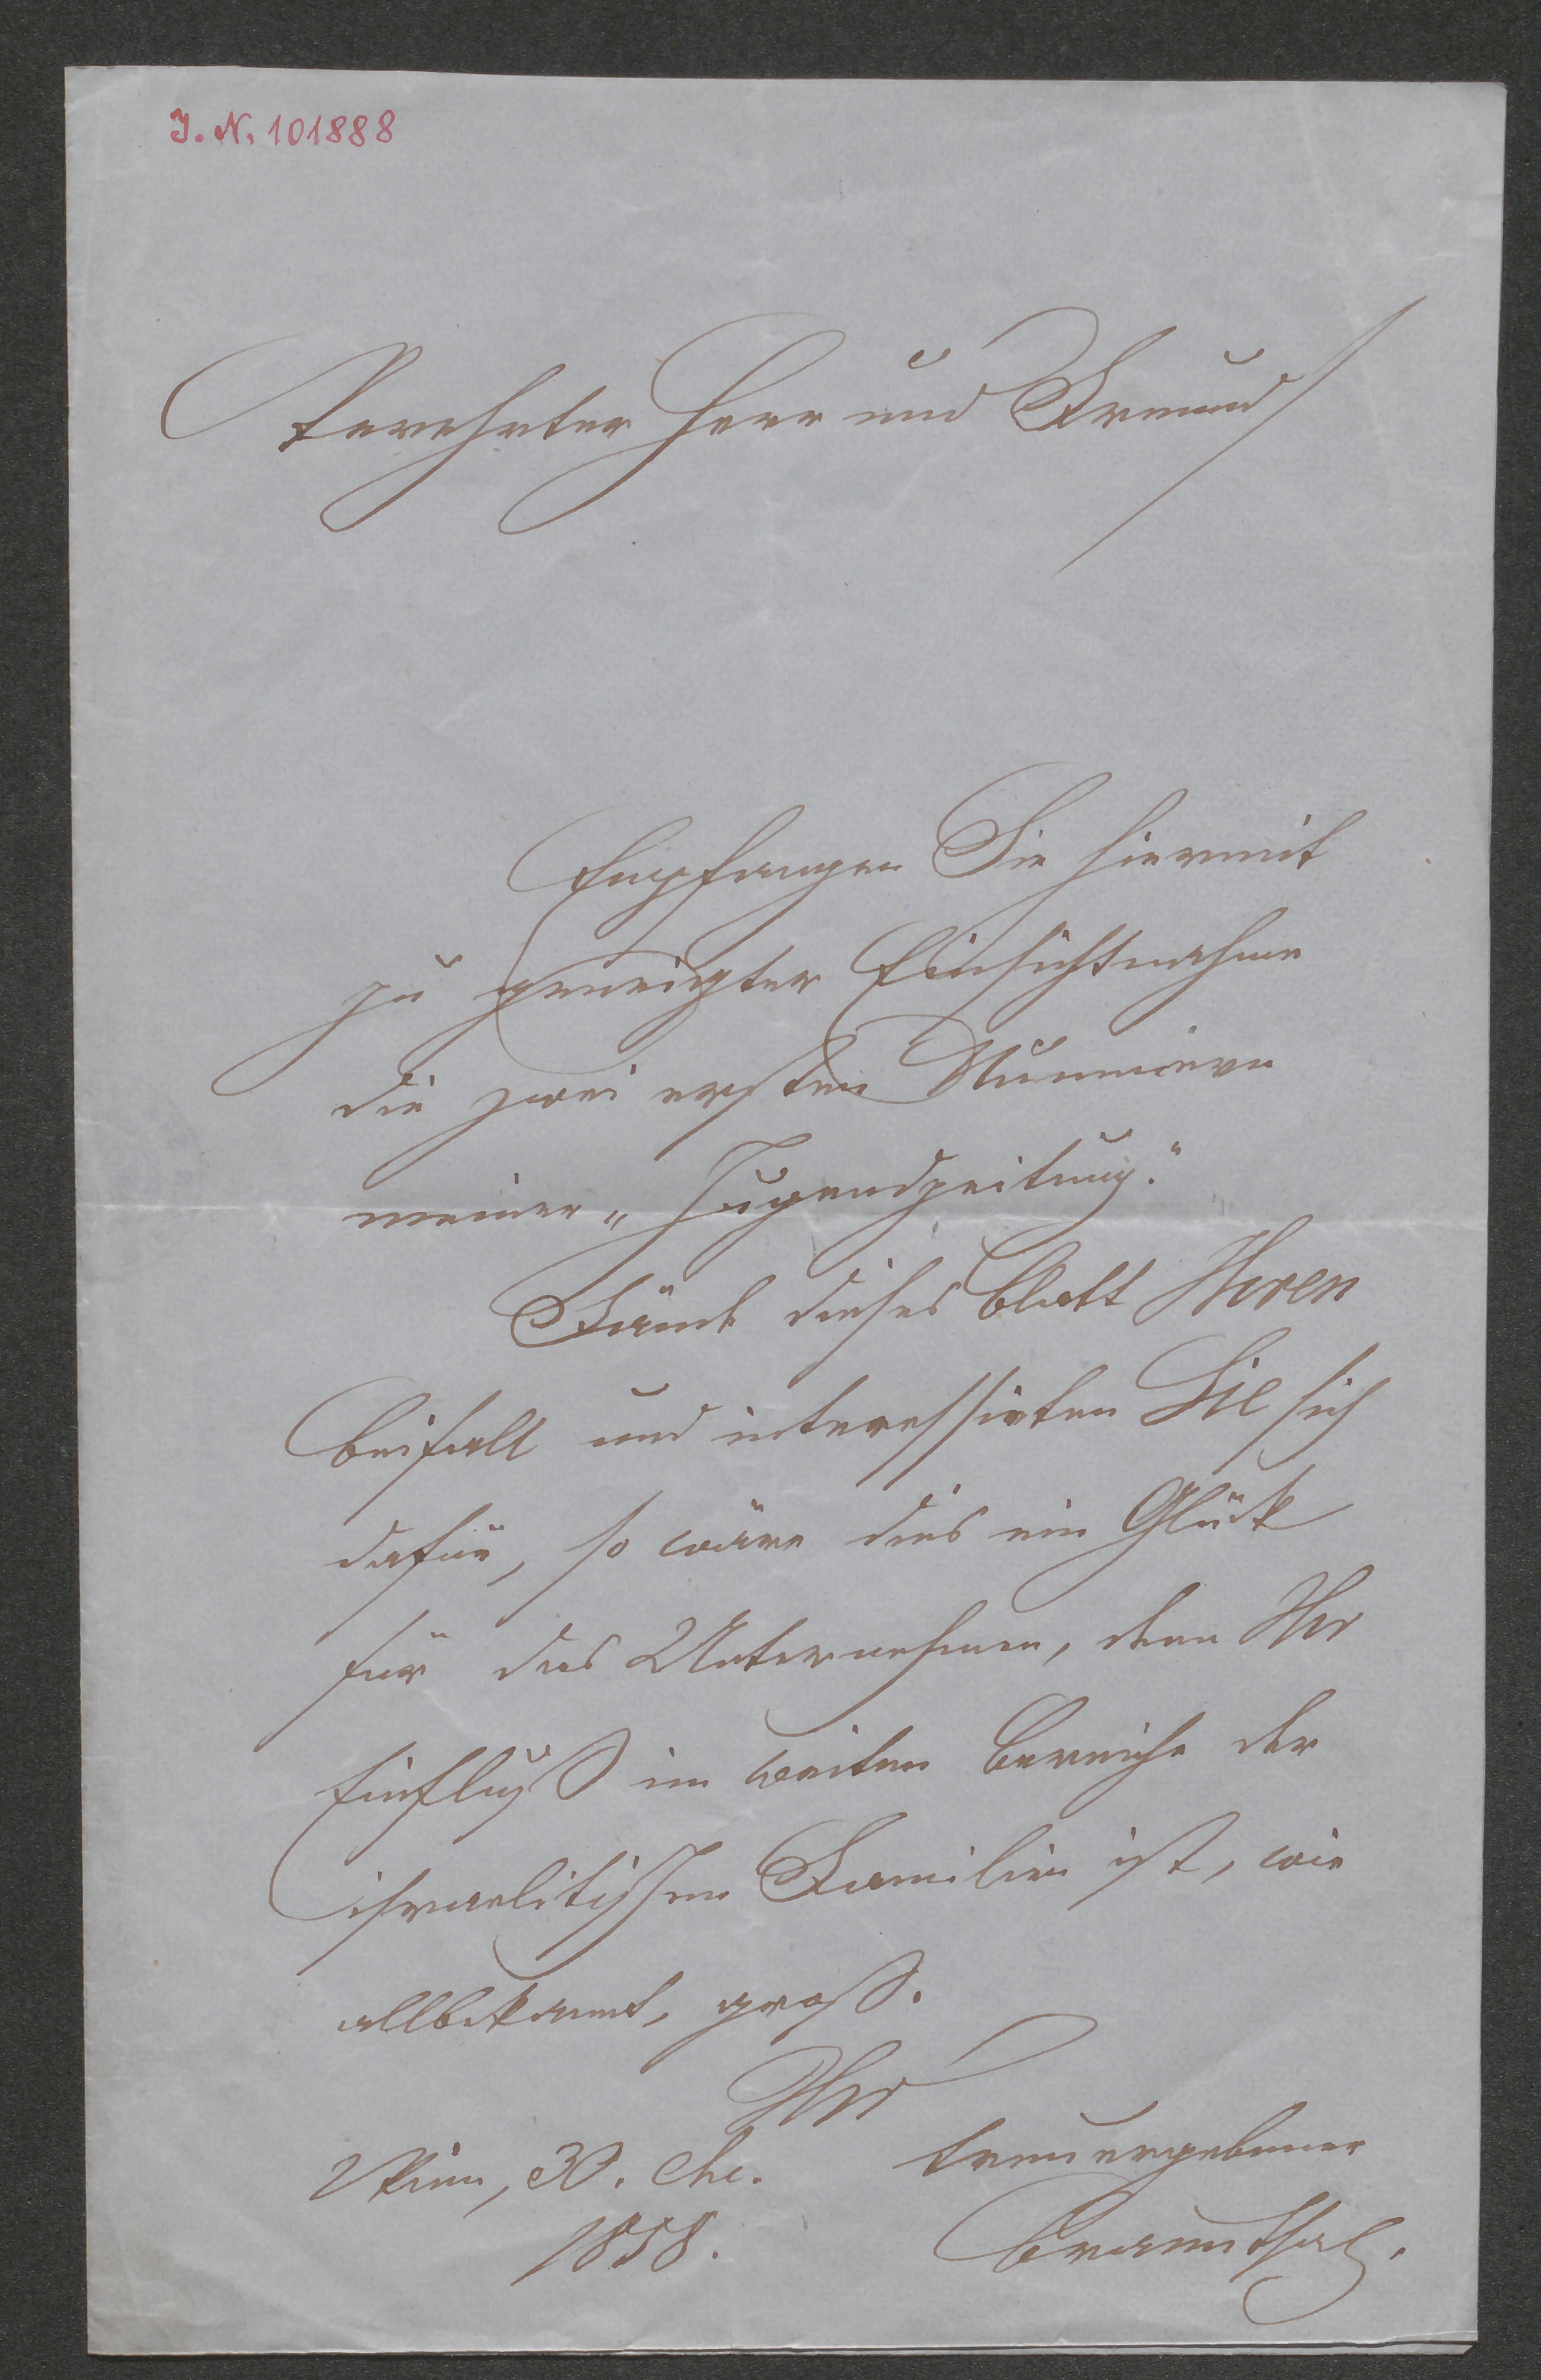 I. N. 101888
Verehrter Herr und Freund
Empfangen Sie hiermit
zu geneigter Einsichtnahme
die zwei ersten Nummern
meiner „Jugendzeitung."
Fände dieses Blatt Ihren
Beifall und interessirten Sie sich
dafür, so wäre dies ein Glück
für das Unternehmen, denn Ihr
Einfluß im weiten Bereiche der
israelitischen Familien ist, wie
allbekannt, groß.
Ihr
Wien, 30. treuergebener
1858. Braunthal.